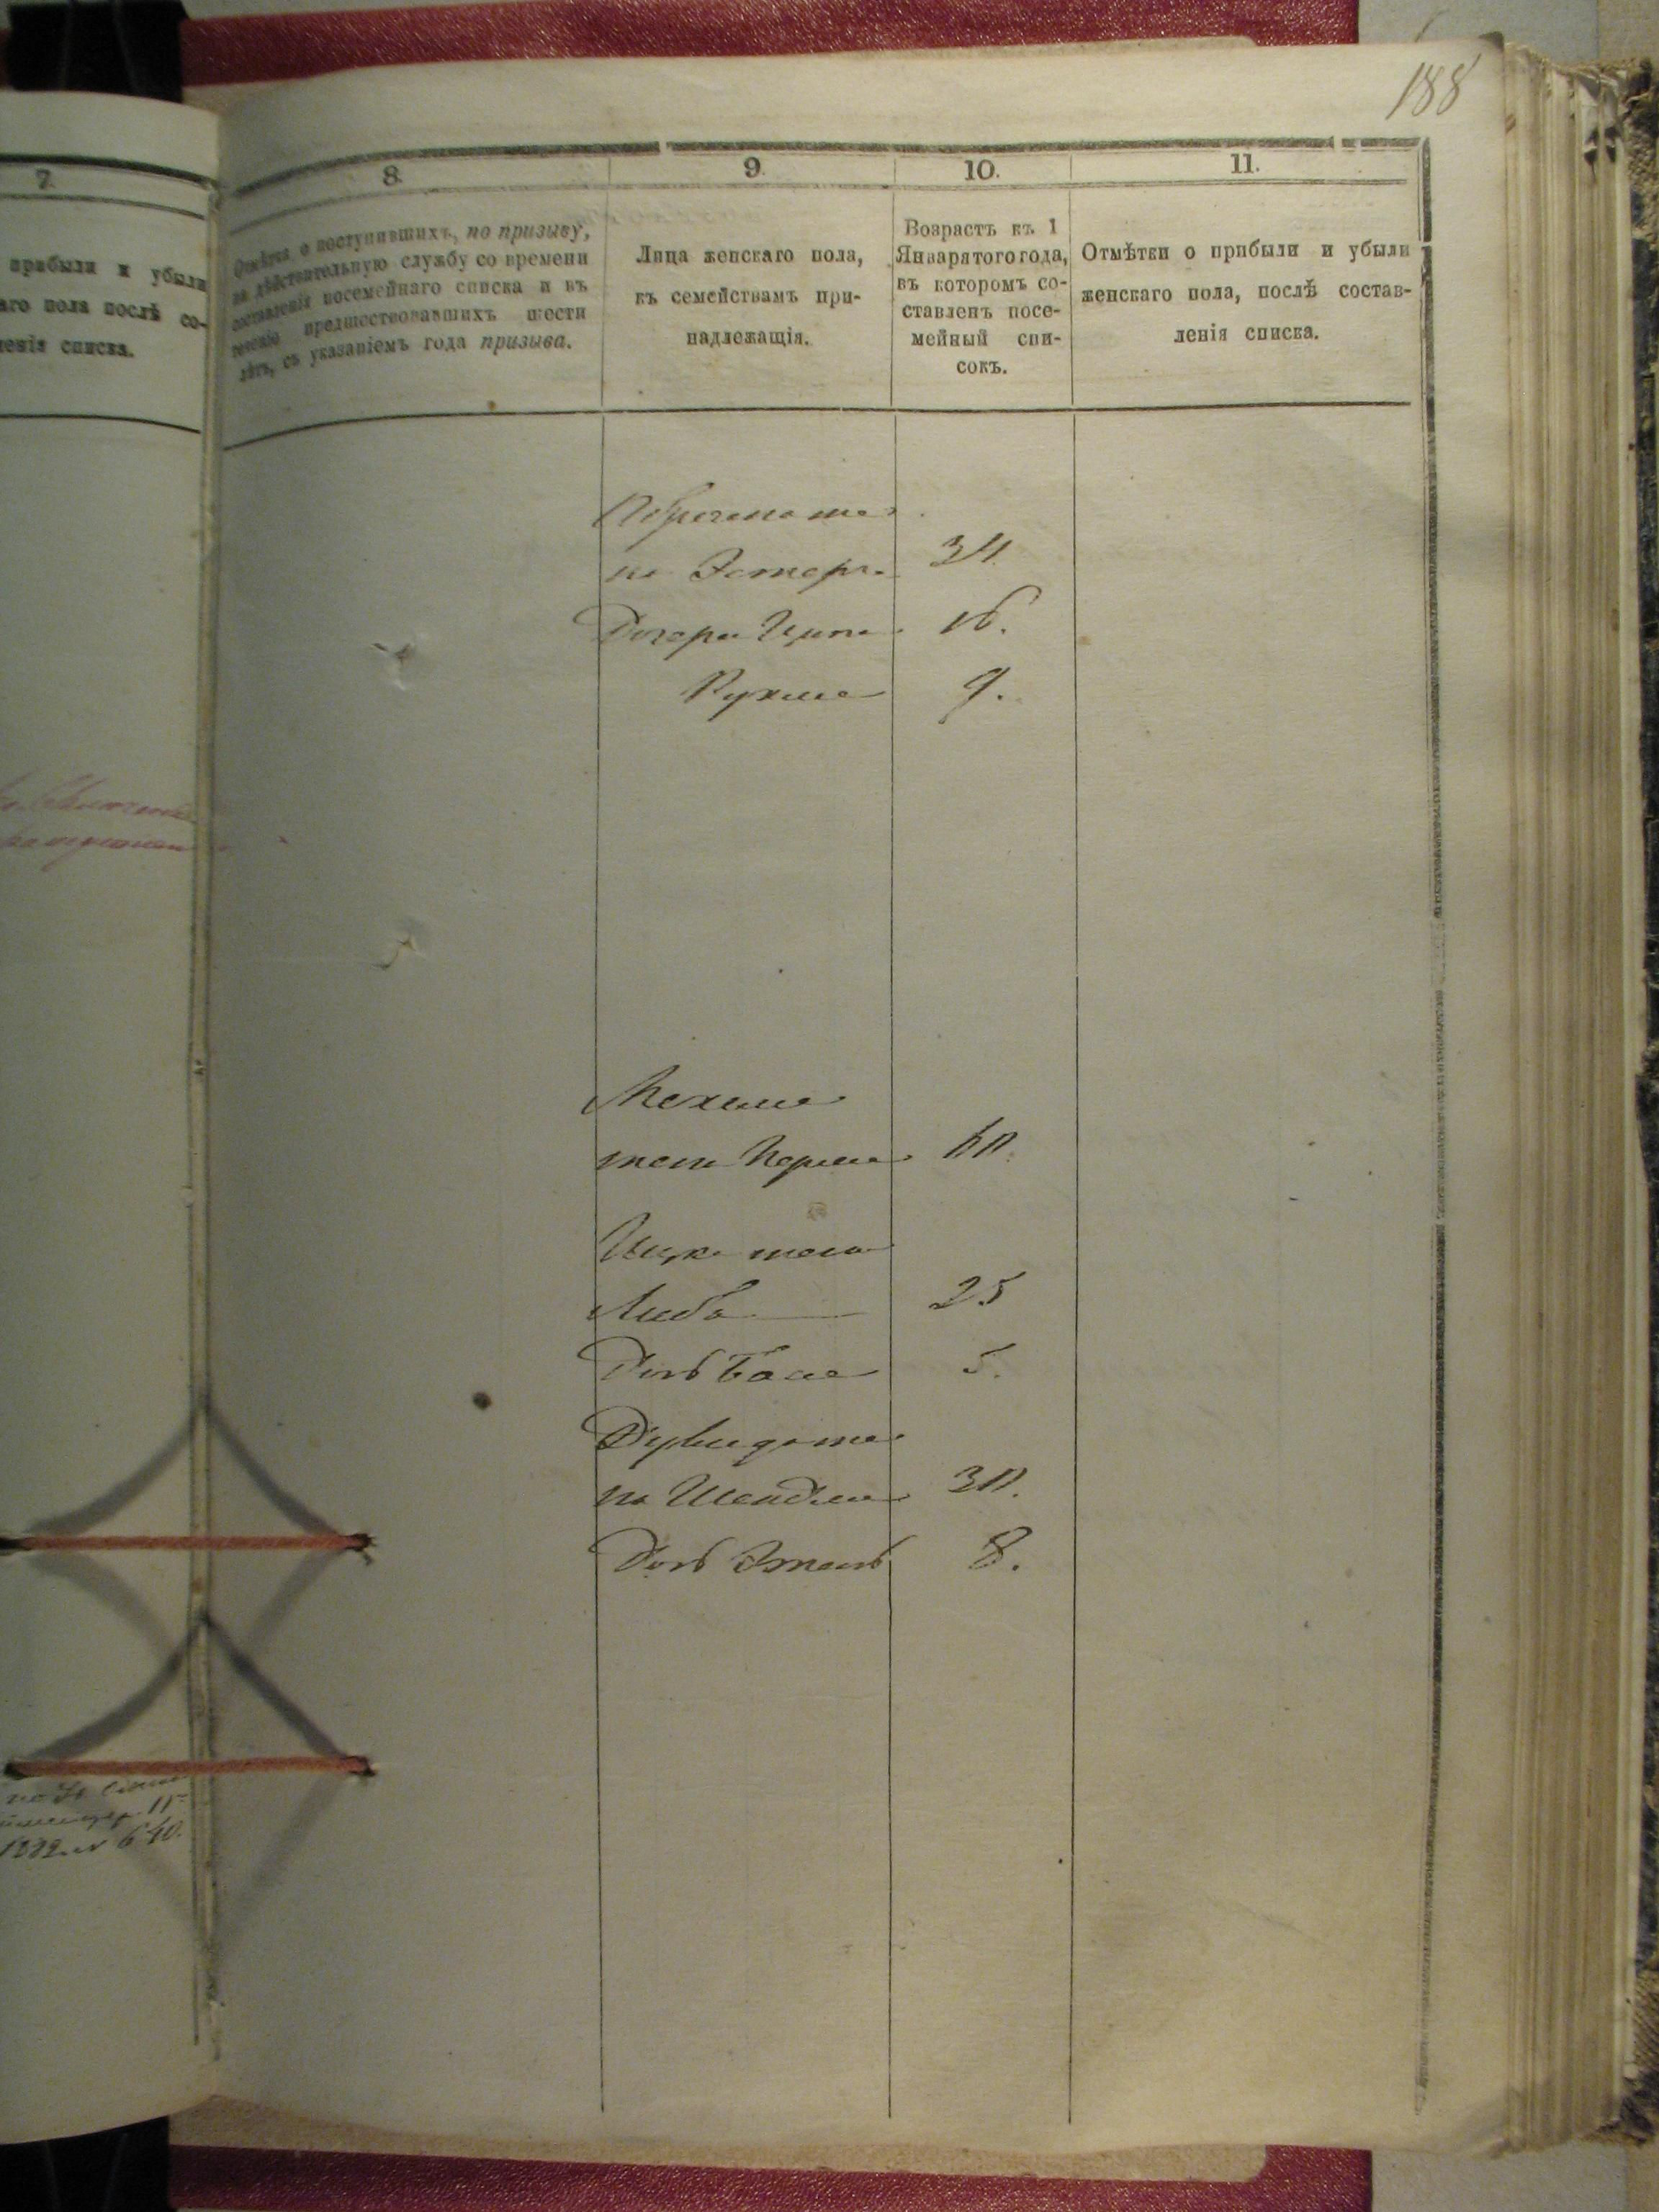 188
7.
прибыли и убыли
аго пола послѣ со-
ленія списка.
8.
Отмѣтка о поступившихъ, по призыву,
на дѣйствительную службу со времени
составленія посемейнаго списка и въ
теченіи предшествовавшихъ шести
лѣтъ, съ указаніемъ года призыва.
9.
Лица женскаго пола,
къ семействамъ при-
надлежащія.
10.
Возрастъ къ 1
Января того года,
въ которомъ со-
ставленъ посе-
мейный спи-
сокъ.
11.
Отмѣтки о прибыли и убыли
женскаго пола, послѣ состав-
ленія списка.
на Эстера 34.
Дочери Ципа 16.
Рухля 9.
жена Перля 60.
Ицка жена
Либа 25
Дочь Бася 5.
Дувида же
на Шейдля 30.
Дочь Этель 8.
1882 № 640.